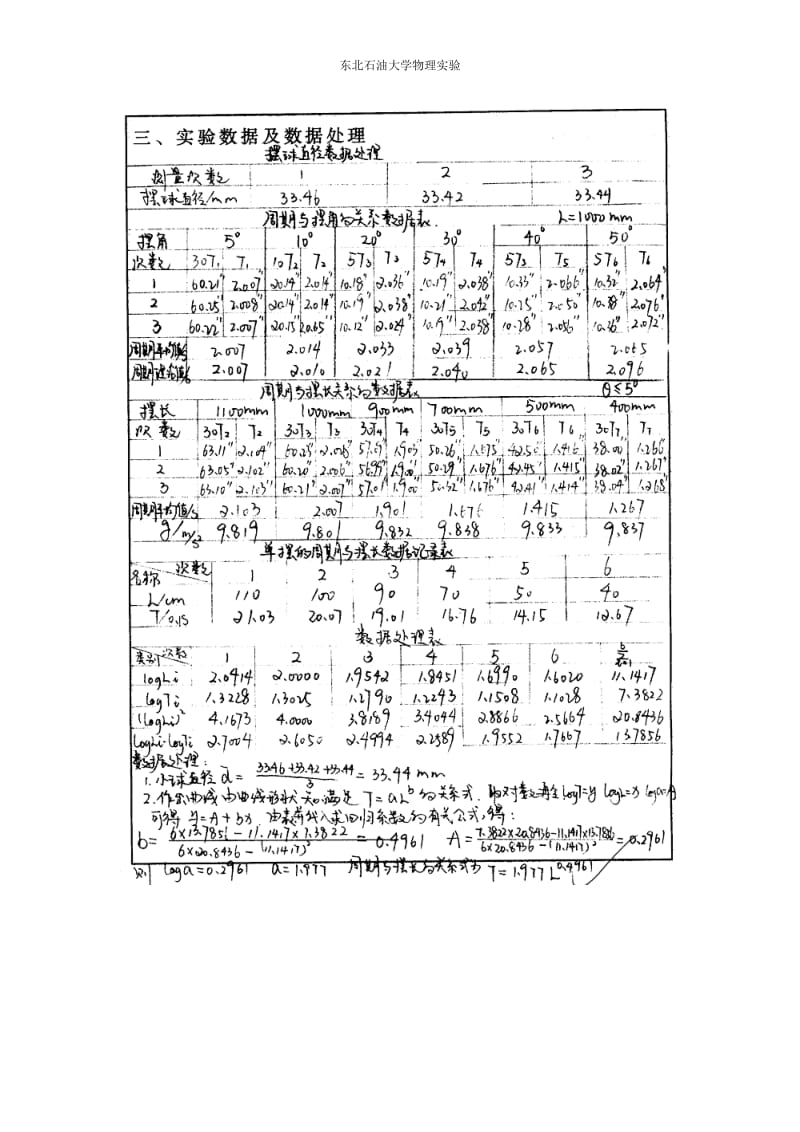 东北石油大学物理实验
三、实验数据及数据处理
摆球直径数据处理
测量次数 1 2 3
摆球直径/mm 33.46 33.42 33.44
周期与摆角的关系数据表 L=1000mm
摆角 5° 10° 20° 30° 40° 50°
次数 30T₁ T₁ 10T₂ T₂ 5T₃ T₃ 5T₄ T₄ 5T₅ T₅ 5T₆ T₆
1 60.21" 2.007" 20.14" 2.014" 10.18" 2.036" 10.19" 2.038" 10.33" 2.066" 10.32" 2.064"
2 60.25 2.008" 20.14" 2.014" 10.19" 2.038" 10.21" 2.042" 10.25" 2.050" 10.38" 2.076"
3 60.22" 2.007" 20.15" 10.12" 2.024" 10.19" 2.038" 10.28" 2.056" 10.36" 2.072"
周期平均值/s 2.007 2.014 2.033 2.039 2.057
周期理论值/s 2.007 2.010 2.021 2.040 2.065 2.096
周期与摆长关系的数据表 θ≤5°
摆长 1100mm 1000mm 900mm 700mm 500mm 400mm
次数 30T₂ T₂ 30T₃ T₃ 30T₄ T₄ 30T₅ T₅ 30T₆ T₆ 30T₇ T₇
1 63.11" 2.104" 60.25" 2.008" 50.26" 1.675" 42.50" 1.416 38.00" 1.266"
2 63.05" 2.102" 60.20" 2.006" 56.99" 1.900" 50.29" 1.676" 42.45" 1.415" 38.02" 1.267"
3 63.10" 2.103" 60.21" 2.007" 57.01" 1.900" 50.32" 1.676" 42.41" 1.414" 38.04" 1.268"
周期平均值/s 2.103 2.007 1.901 1.676 1.415 1.267
g/m/s² 9.819 9.801 9.832 9.838 9.833 9.837
单摆的周期与摆长数据记录表
名称 次数 1 2 3 4 5 6
L/cm 110 100 90 70 50 40
T/0.1s 21.03 20.07 19.01 16.76 14.15 12.67
数据处理表
类别 次数 1 2 3 4 5 6
logLi 2.0414 2.0000 1.9542 1.8451 1.6990 1.6020 11.1417
logTi 1.3228 1.3025 1.2790 1.2243 1.1508 1.1028 7.3822
(logLi)² 4.1673 4.0000 3.8189 3.4044 2.8866 2.5664 20.8436
logLi·logTi 2.7004 2.6050 2.4994 2.2589 1.9552 1.7667 13.7856
数据处理：
1. 小球直径 d̄ = (33.46+33.42+33.44)/3 = 33.44 mm
2. 作出曲线 由曲线形状知满足 T=aLᵇ的关系式. 取对数再令 logT=y logL=x loga=A
可得 y=A+bx. 由表著代入求回归系数的有关公式, 得:
b = (6×13.7856-11.1417×7.3822)/(6×20.8436-(11.1417)²) = 0.4961 A = (7.3822×20.8436-11.1417×13.7856)/(6×20.8436-(11.1417)²) = 0.2961
则 loga=0.2961 a=1.977 周期与摆长的关系式为 T=1.977L^0.4961